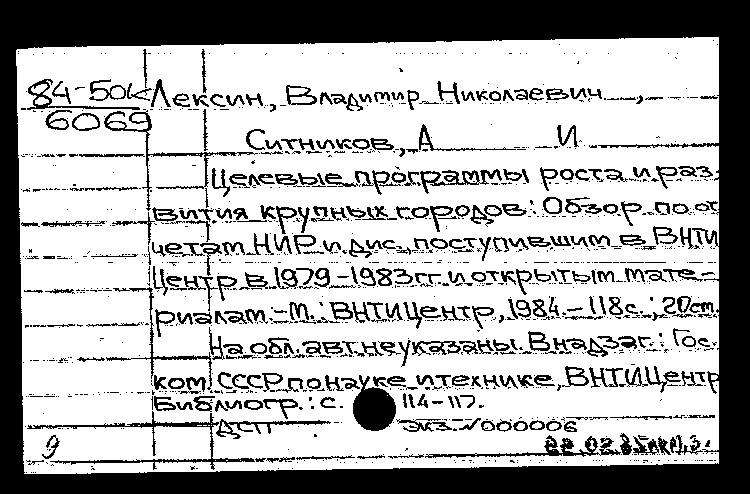 84-50к Лексин, Владимир Николаевич ,
6069
Ситников, А И
Целевые программы роста и раз-
вития крупных городов: Обзор по от
четам НИР и дис., поступившим в ВНТИ
Центр в 1979-1983гг. и открытым мате-
риалам.-М.: ВНТИЦентр, 1984.-118с.; 20см.
На обл. авт. не указаны. В надзаг.: Гос.
ком. СССР по науке и технике, ВНТИЦентр
Библиогр.: с. 114-117.
ДСП экз. N000006
9 22.02.85